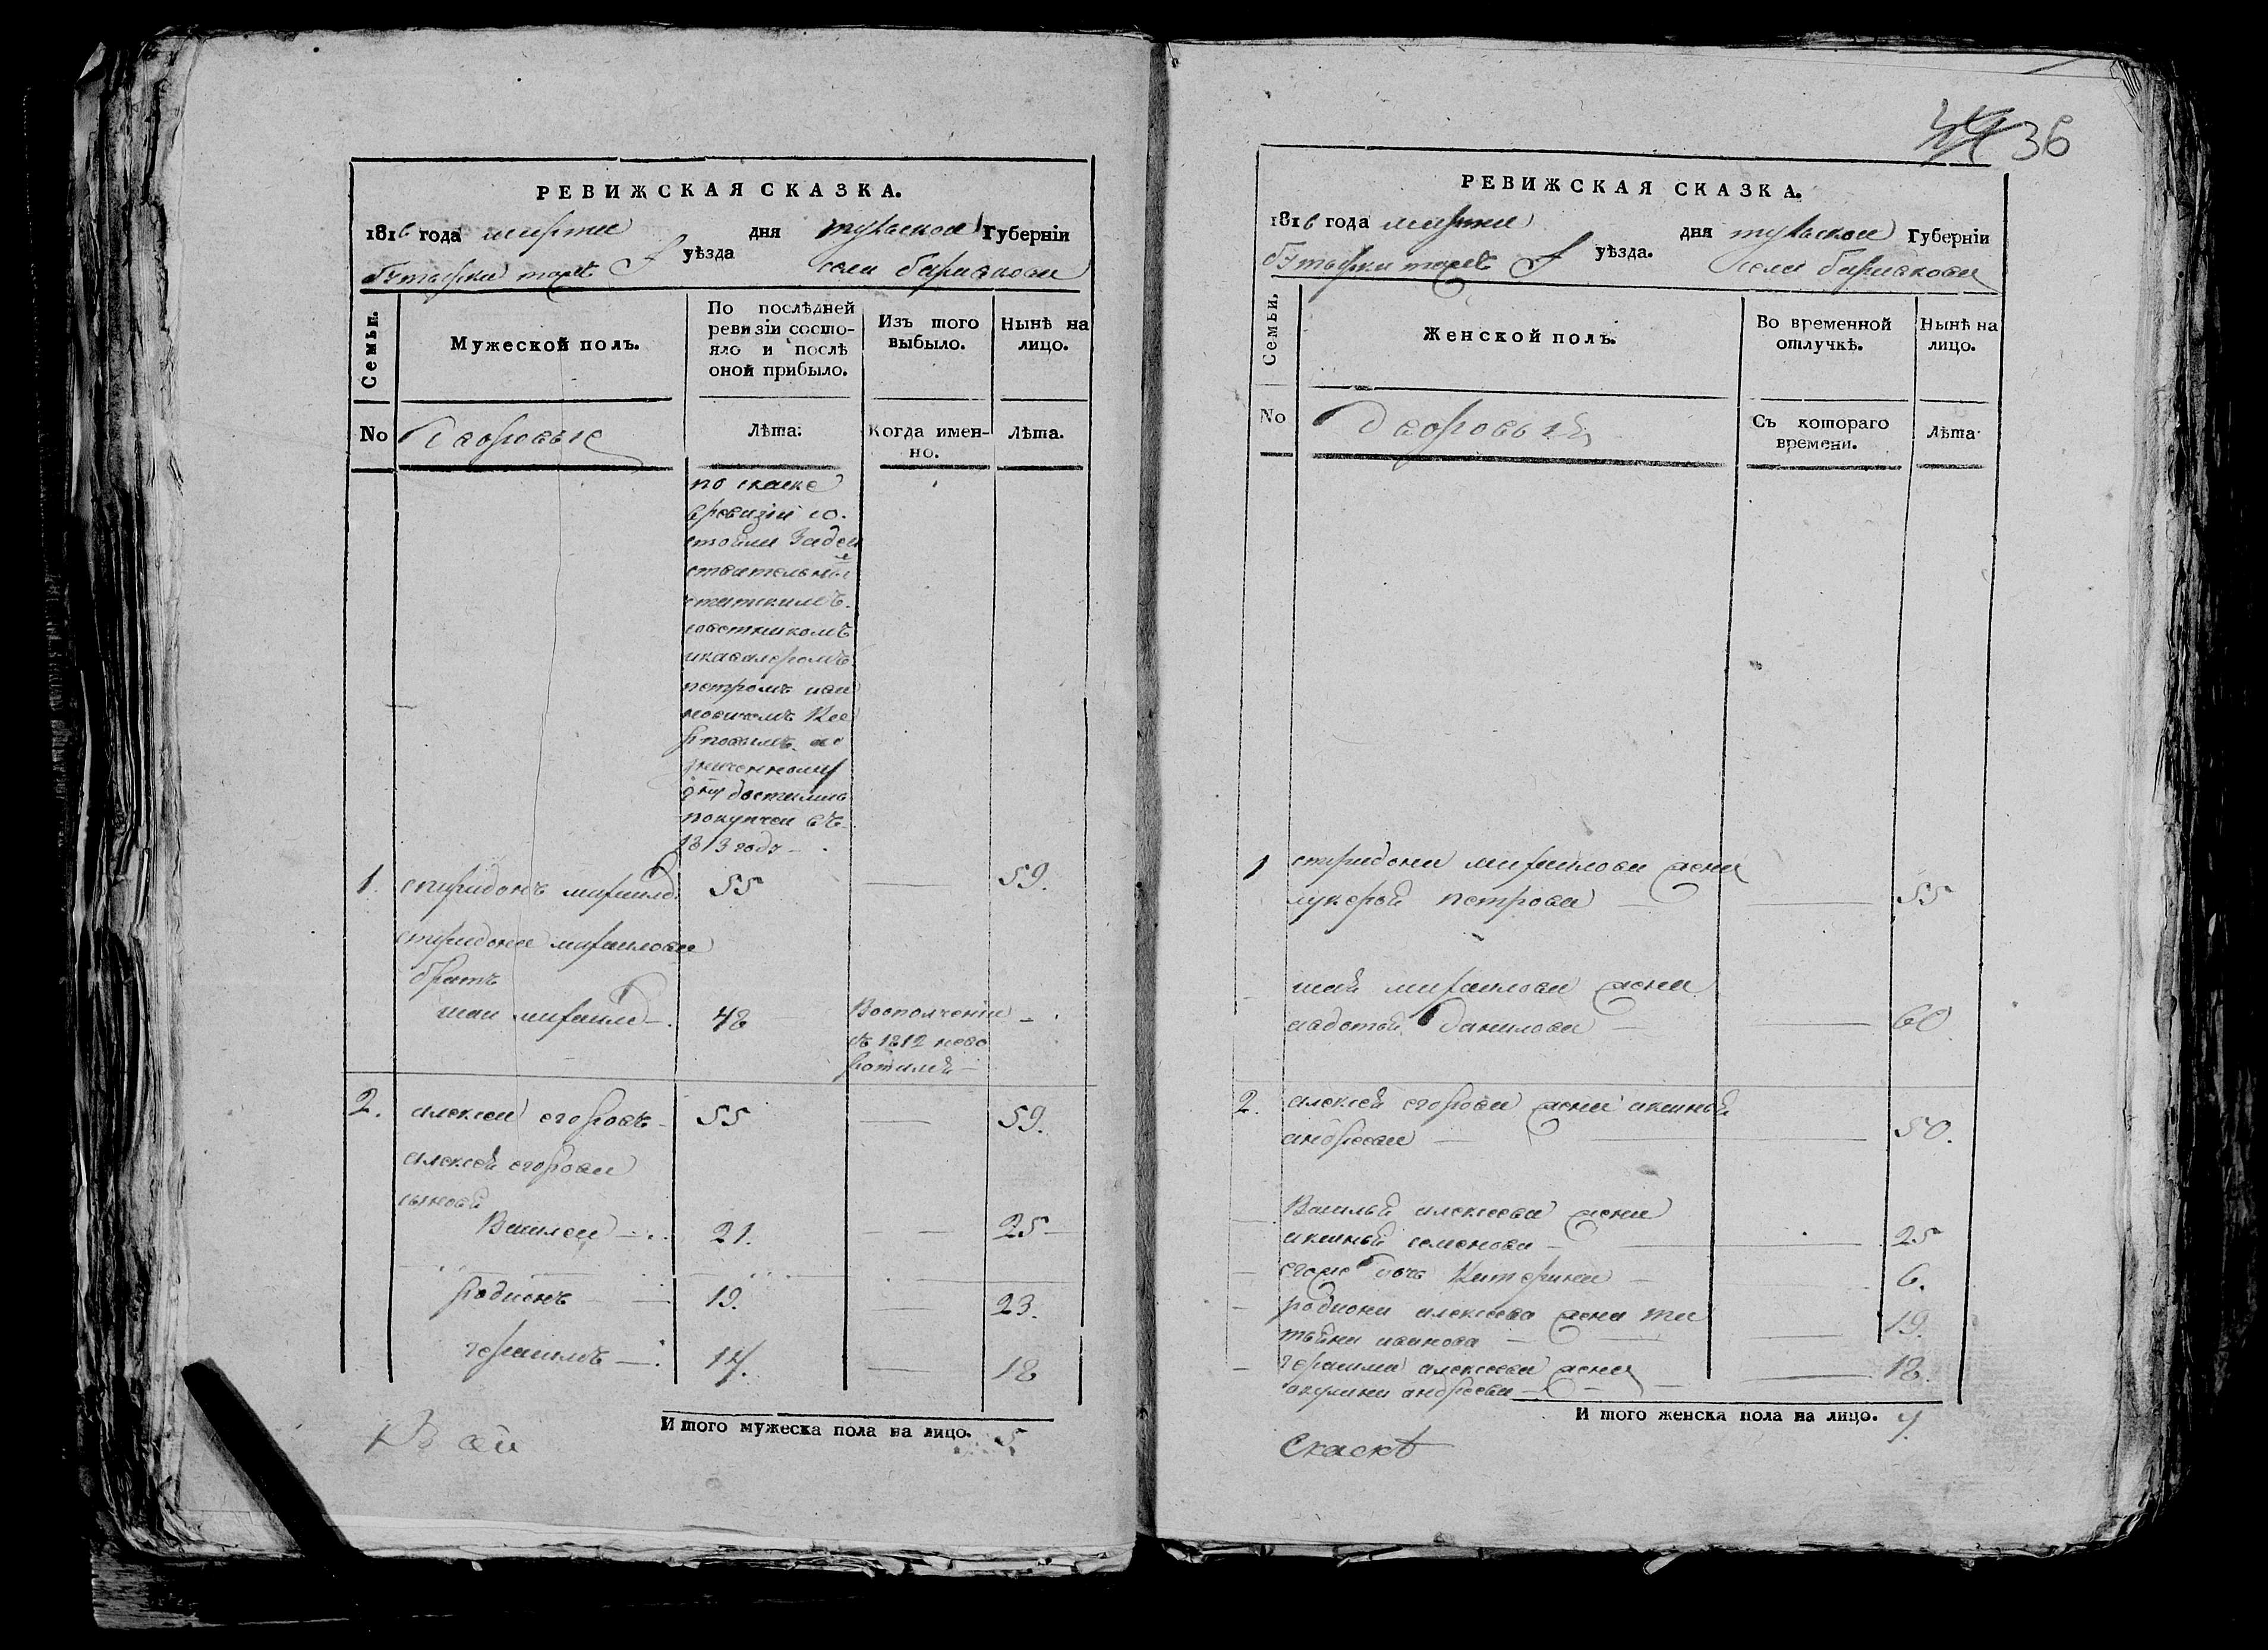 36
РЕВИЖСКАЯ СКАЗКА.
1816 года марта дня тульской Губерніи
уѣзда села
Семьи.
Мужеской полъ.
По послѣдней
ревизіи состо-
яло и послѣ
оной прибыло.
Изъ того
выбыло.
Нынѣ на
лицо.
No
дворовые
Лѣта.
Когда имен-
но.
Лѣта.
по скаске
времизіи со-
стояли Задей
ствительным
статскимъ
советникомъ
икавалеромъ
петромъ ива
новичемъ
значенному
досталис
покупкеи въ
1813 году
1. спиридонъ михаило 55 — 59.
спиридона михаилова
братъ
иван михаило 48 Вополчении
въ 1812 нево
ротился
2. алексеи егоровъ 55 — 59.
алексея егорова
сыновя
Василеи 21. — 25
Родионъ 19. — 23.
герасимъ 14. — 18
И того мужеска пола на лицо. 5
РЕВИЖСКАЯ СКАЗКА.
1816 года марта дня тульской Губерніи
уѣзда. села
Семьи.
Женской полъ.
Во временной
отлучкѣ.
Нынѣ на
лицо.
No
дворовыя
Съ котораго
времени.
Лѣта.
1 спиридона михаилова жена
лукеря петрова — 55
михаилова жена
авдотя данилова — 60
2. алексея егорова жена аксинья
андреева — 50.
Василья алексеева жена
аксинья семенова — 25
егоже дочь Катерина 6.
родиона алексеева жена та
тьяна иванова — 19.
герасима алексеева жена
акулина андреева — 18.
И того женска пола на лицо. 7.
Скаскѣ